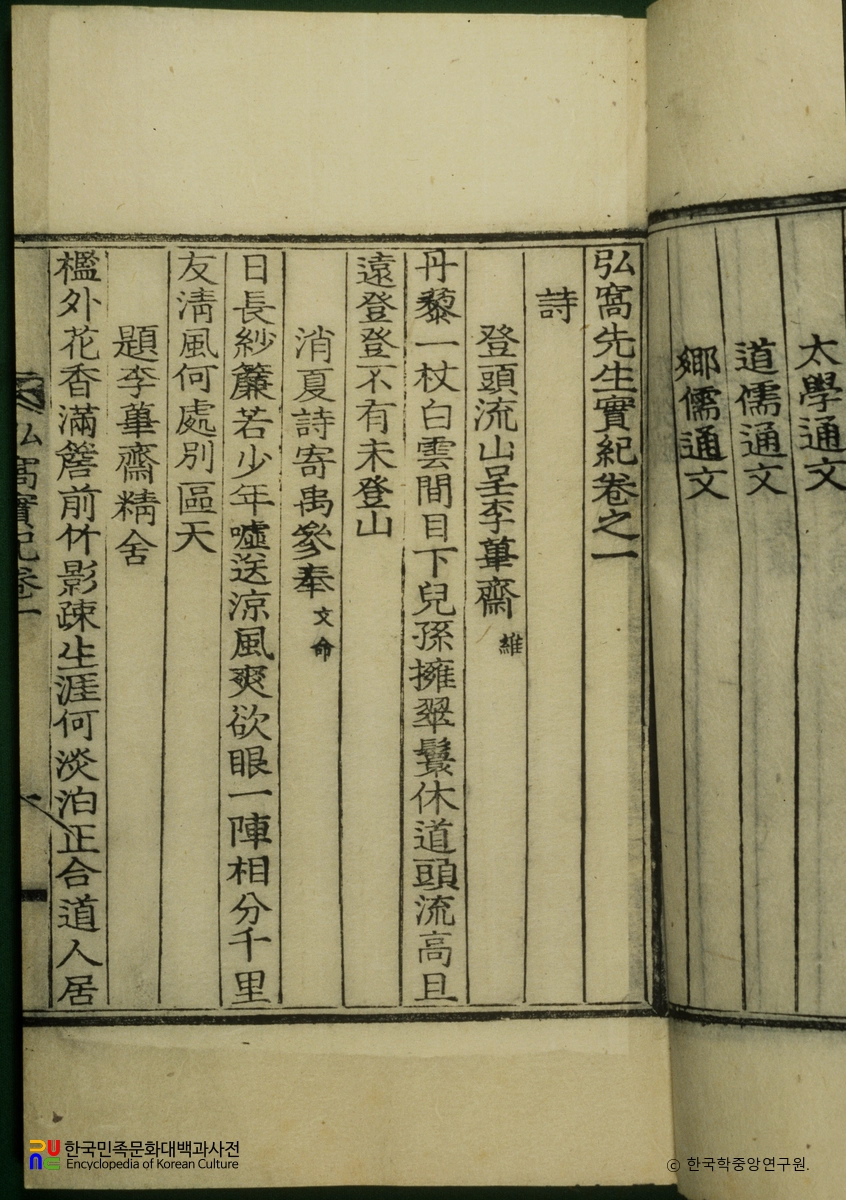 太學通文
道儒通文
鄕儒通文
弘窩先生實紀卷之一
詩
登頭流山呈李葟齋 維
丹藜一杖白雲間目下兒孫擁翠鬟休道頭流高且
遠登登不有未登山
消夏詩寄禹參奉 文命
日長紗簾若少年嘘送涼風爽欲眠一陣相分千里
友淸風何處別區天
題李葟齋精舍
檻外花香滿簷前竹影疎生涯何淡泊正合道人居
弘窩實紀卷一
한국민족문화대백과사전
Encyclopedia of Korean Culture
ⓒ 한국학중앙연구원.